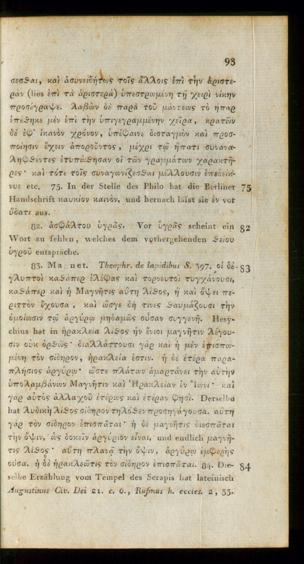 93
σεσθαι, καὶ ἀσυνειδήτως τοῖς ἄλλοις ἐπὶ τὴν ἀριστε-
ρὰν (lies ἐπὶ τὰ ἀριστερὰ) ὑπεστρωμένη τῇ χειρὶ νίκην
προσέγραψε. λαβὼν δὲ παρὰ τοῦ μάντεως τὸ ἧπαρ
ἐπέθηκε μὲν ἐπὶ τὴν ὑπογεγραμμένην χεῖρα, κρατῶν
δὲ ἐφ' ἱκανὸν χρόνον, ὑπέφαινε δισταγμὸν καὶ προσ-
ποίησιν εἶχεν ἀποροῦντος, μέχρι τῷ ἥπατι συνανα-
ληφθέντες ἐτυπώθησαν οἱ τῶν γραμμάτων χαρακτῆ-
ρες· καὶ τότε τοῖς συναγωνίζεσθαι μέλλουσιν ἐπεδείκ-
νυε etc. 75. In der Stelle des Philo hat die Berliner 75
Handschrift καυκίον καινόν, und hernach läſst sie ἐν vor
ὕδατι aus.
82. ἀσφάλτου ὑγρᾶς. Vor ὑγρᾶς scheint ein 82
Wort zu fehlen, welches dem vorhergehenden θείου
ὑγροῦ entspräche.
83. Magnet. Theophr. de lapidibus S. 397. οἱ δὲ- 83
γλυπτοὶ καθάπερ ἐλέφας καὶ τορνευτοὶ τυγχάνουσι,
καθάπερ καὶ ἡ Μαγνῆτις αὕτη λίθος, ἣ καὶ ὄψει πε-
ριττὸν ἔχουσα, καὶ ὥσγε δή τινες θαυμάζουσι τὴν
ὁμοίωσιν τῷ ἀργύρῳ μηδαμῶς οὖσαν συγγενῆ. Hesy-
chius hat in ἡρακλεία λίθος ἣν ἔνιοι μαγνῆτιν λέγου-
σιν οὐκ ὀρθῶς· διαλλάττουσι γὰρ καὶ ἡ μὲν ἐπισπω-
μένη τὸν σίδηρον, ἡρακλεία ἐστιν. ἡ δὲ ἑτέρα παρα-
πλήσιος ἀργύρῳ· ὥστε πλάτων ἁμαρτάνει τὴν αὐτὴν
ὑπολαμβάνων Μαγνῆτιν καὶ Ἡρακλείαν ἐν Ἴωνι· καὶ
γὰρ αὐτὸς ἀλλαχοῦ ἑτέρας καὶ ἑτέραν φησί. Derselbe
hat λυδικὴ λίθος σίδηρον τηλόθεν προσηγάγουσα. αὕτη
γὰρ τὸν σίδηρον ἐπισπᾶται· ἡ δὲ μαγνῆτις διασπᾶται
τὴν ὄψιν, ὡς δοκεῖν ἀργύριον εἶναι, und endlich μαγνῆ-
τις λίθος· αὕτη πλανᾷ τὴν ὄψιν, ἀργύρῳ ἐμφερὴς
οὖσα. ἡ δὲ ἡρακλεῶτις τὸν σίδηρον ἐπισπᾶται. 84. Die- 84
selbe Erzählung vom Tempel des Serapis hat lateinisch
Augustinus Civ. Dei 21. c. 6., Rufinus h. eccles. 2, 33.